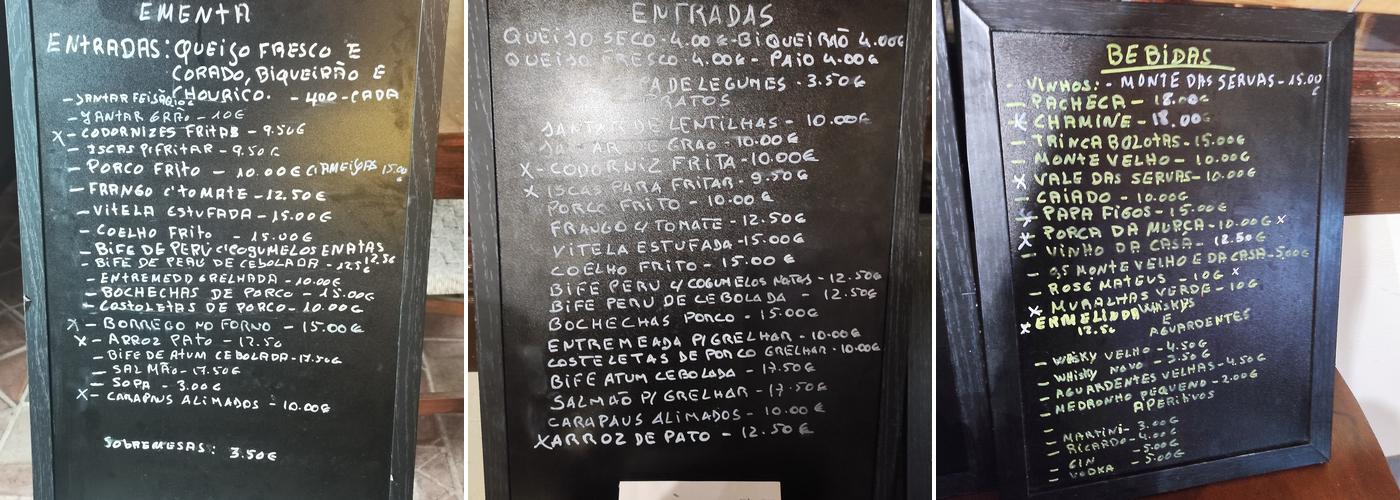 EMENTA
ENTRADAS: QUEIJO FRESCO E
CORADO, BIQUEIRÃO E
CHOURIÇO. - 400 - CADA
- JANTAR FEIJÃO
- JANTAR GRÃO - 10€
X - CODORNIZES FRITAS - 9.50€
- ISCAS P/FRITAR - 9.50€
- PORCO FRITO - 10.00€ C/AMEIJOAS 15.00
- FRANGO C/TOMATE - 12.50€
- VITELA ESTUFADA - 15.00€
- COELHO FRITO - 15.00€
- BIFE DE PERÚ C/COGUMELOS E NATAS 12.5€
- BIFE DE PERU DE CEBOLADA - 12.5€
- ENTREMEDD GRELHADA - 10.00€
- BOCHECHAS DE PORCO - 15.00€
- COSTOLETAS DE PORCO - 10.00€
X - BORREGO NO FORNO - 15.00€
X - ARROZ PATO - 12.5€
- BIFE DE ATUM CEBOLADA - 17.50€
- SALMÃO - 17.50€
- SOPA - 3.00€
X - CARAPAUS ALIMADOS - 10.00€
SOBREMESAS: 3.50€
ENTRADAS
QUEIJO SECO - 4.00€ - BIQUEIRÃO 4.00€
QUEIJO FRESCO - 4.00€ - PAIO 4.00€
PA DE LEGUMES - 3.50€
PRATOS
JANTAR DE LENTILHAS - 10.00€
JANTAR DE GRÃO - 10.00€
X - CODORNIZ FRITA - 10.00€
X ISCAS PARA FRITAR - 9.50€
PORCO FRITO - 10.00€
FRANGO C/TOMATE - 12.50€
VITELA ESTUFADA - 15.00€
COELHO FRITO - 15.00€
BIFE PERU C/COGUMELOS NATAS - 12.50€
BIFE PERU DE CEBOLADA - 12.50€
BOCHECHAS PORCO - 15.00€
ENTREMEADA P/GRELHAR - 10.00€
COSTELETAS DE PORCO GRELHAR - 10.00€
BIFE ATUM CEBOLADA - 17.50€
SALMÃO P/GRELHAR - 17.50€
CARAPAUS ALIMADOS - 10.00€
X ARROZ DE PATO - 12.50€
BEBIDAS
- VINHOS: - MONTE DAS SERVAS - 15.00€
- PACHECA - 18.00€
X CHAMINE - 18.00€
- TRINCA BOLOTAS - 15.00€
- MONTE VELHO - 10.00€
X VALE DAS SERVAS - 10.00€
- CAIADO - 10.00€
X PAPA FIGOS - 15.00€
X PORCA DA MURÇA - 10.00€ X
- VINHO DA CASA - 12.50€
- 0,5 MONTE VELHO E DA CASA - 5,00€
- ROSÉ MATEUS - 10€ X
X MURALHAS VERDE - 10€
X ERMELINDA 12.5€
WHISKYS
E
AGUARDENTES
- WHISKY VELHO - 4.50€
- WHISKY NOVO - 3.50€
- AGUARDENTES VELHAS - 4.50€
- MEDRONHO PEQUENO - 2.00€
APERITIVOS
- MARTINI - 3.00€
- RICARDO - 4.00€
- GIN - 5.00€
- VODKA - 5.00€